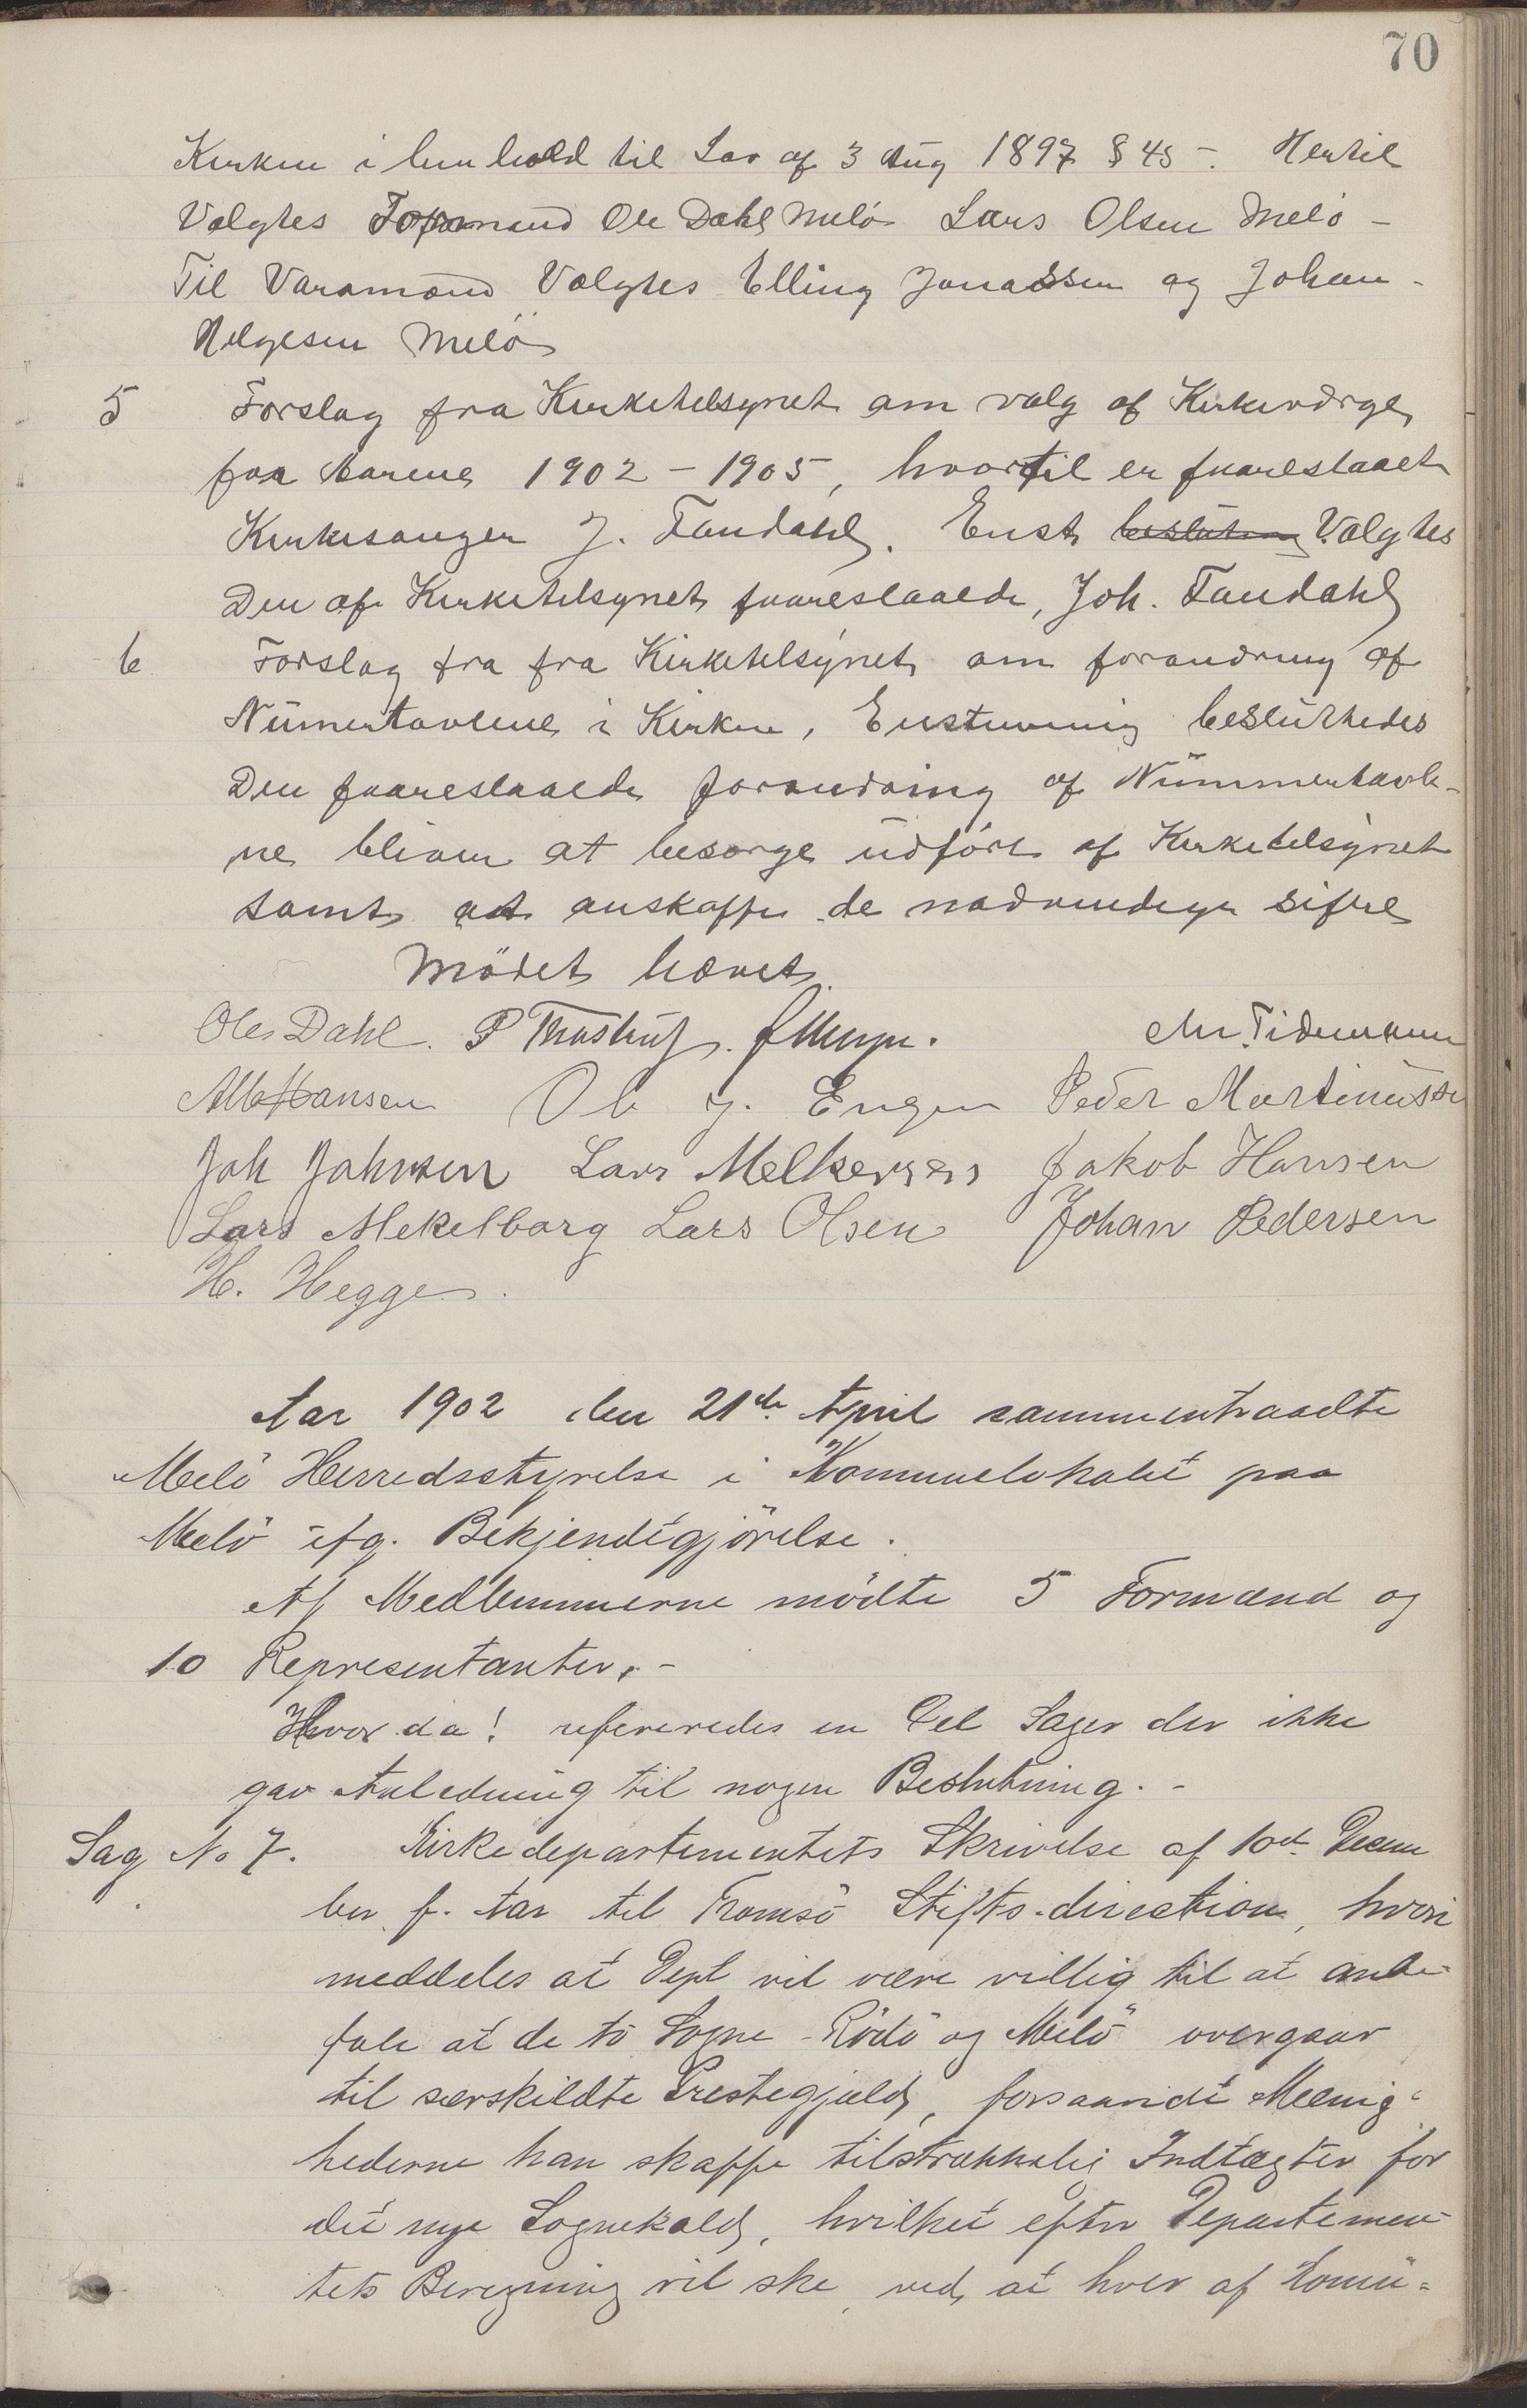 70
Kirken i henhold til Lov af 3 Aug 1897 § 45 -. Hertil
Valgtes Formand Ole Dahl Melö Lars Olsen Melö -
Til Varamænd Valgtes Elling Jonassen og Johan
Helgesen Melö
5 Forslag fra Kirketilsynet om valg af Kirkeværge
for Aarene 1902 - 1905, hvortil er foareslaaet
Kirkesanger J. Tandahl. Enst. beslutning Valgtes
Den af Kirketilsynet foareslaaede, Joh. Tandahl
6 Forslag fra fra Kirketilsynet om forandring af
Numertavlene i Kirken, Enstemmig besluttedes
Den foareslaaede forandring af Nummertavle-
ne bliver at besørge udført af Kirketilsynet
samt at anskaffe de nødvendige sifre
Mödet hævet.
Ole Dahl. P Thrastrup. Chr. Tidemann
Alb Hansen Ole J. Engen Peder Martinussen
Joh Johnsen Lars Melkersen Jakob Hansen
Lars Mekelborg Lars Olsen Johan Pedersen
H. Hegge.
Aar 1902 den 21de April sammentraadte
Melö Herredsstyrelse i Kommunelokalet paa
Melö ifg. Bekjendtgjörelse.
Af Medlemmerne mödte 5 Formænd og
10 Representanter. -
Hvor da! refereredes en Del Sager der ikke
gav Anledning til nogen Beslutning. -
Sag No 7. Kirkedepartementets Skrivelse af 10de Decem
ber f. Aar til Tromsö Stifts-direction, hvori
meddeles at Dept vil være villig til at anbe-
fale at de to Sogne - Rödö og Melö overgaar
til særskildte Prestegjæld, forsaavidt Menig-
hederne kan skaffe tilstrækkelig Indtægter for
det nye Sognekald, hvilket efter Departemen-
tets Beregning vil ske, ved at hver af Komü-